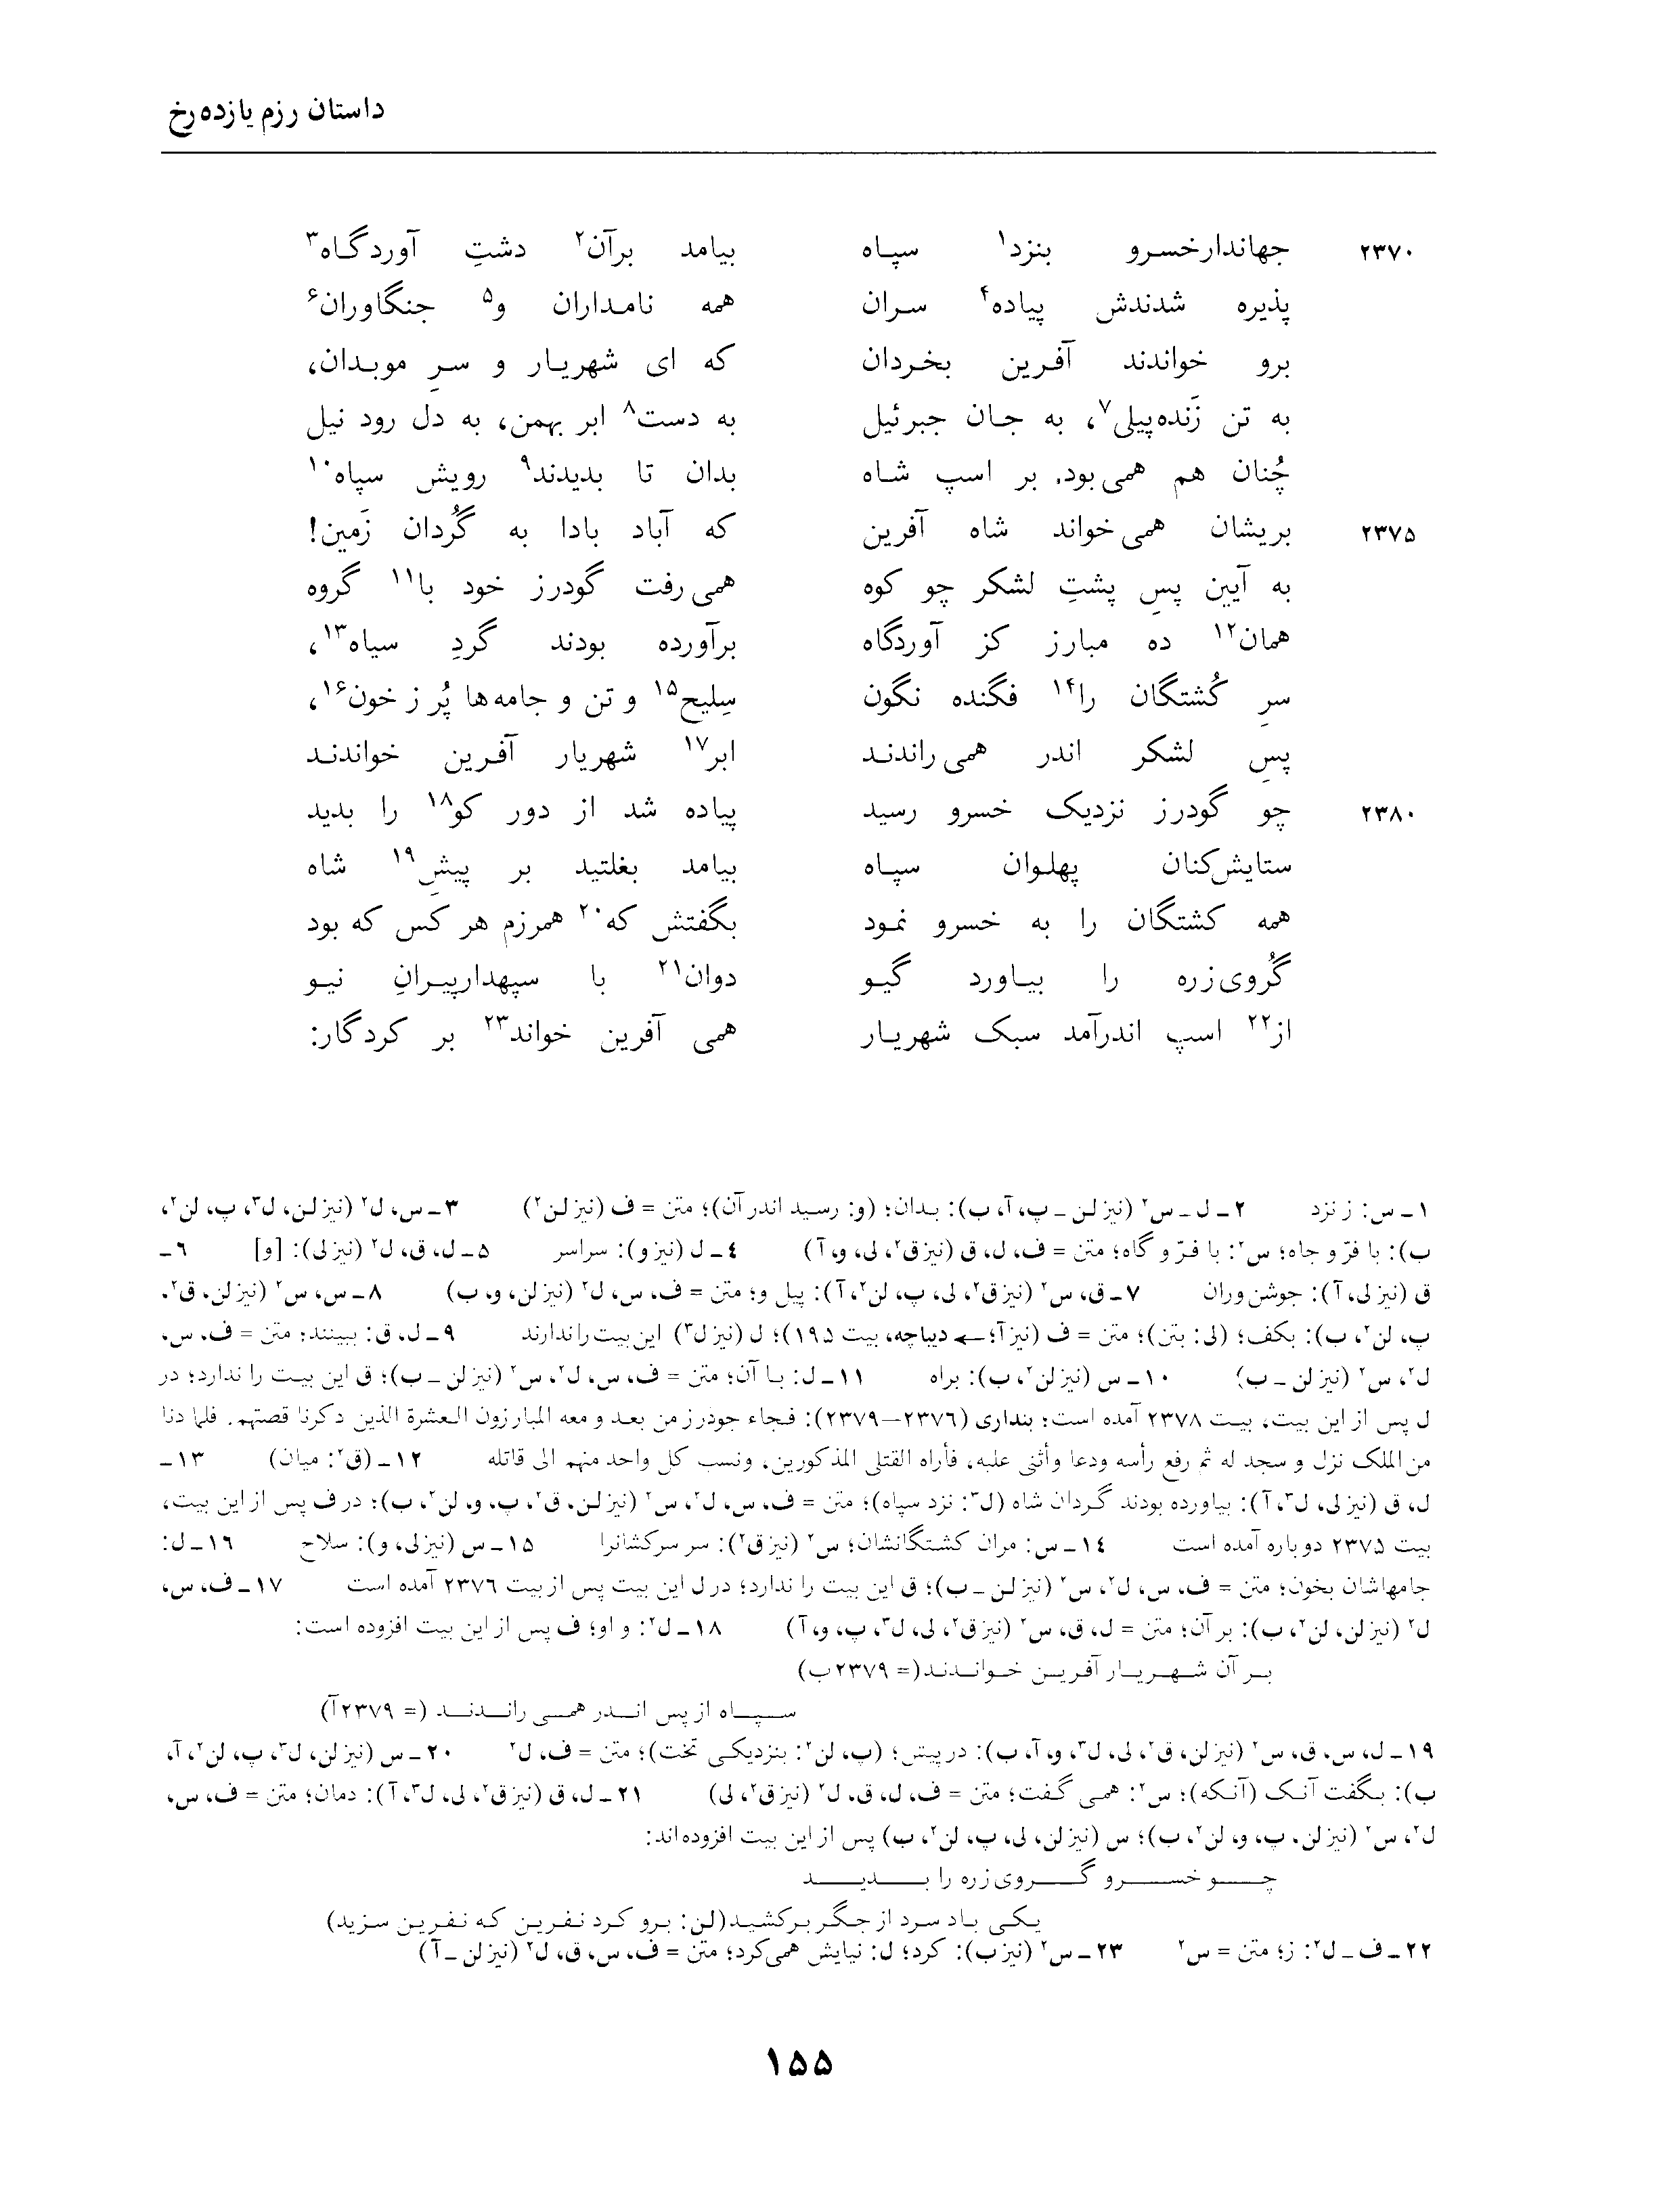 داستان رزم یازده‌رخ
۲۳۷۰ جهاندارخسرو بنزد۱ سپاه بیامد برآن۲ دشتِ آوردگاه۳
پذیره شدندش پیاده۴ سران همه نامداران و۵ جنگاوران۶
برو خواندند آفرین بخردان که ای شهریار و سرِ موبدان،
به تن زَنده‌پیلی۷، به جان جبرئیل به دست۸ ابر بهمن، به دل رود نیل
چُنان هم همی‌بود، بر اسپ شاه بدان تا بدیدند۹ رویش سپاه۱۰
۲۳۷۵ بریشان همی‌خواند شاه آفرین که آباد بادا به گُردان زَمین!
به آیین پسِ پشتِ لشکر چو کوه همی‌رفت گودرز خود با۱۱ گروه
همان۱۲ ده مبارز کز آوردگاه برآورده بودند گَردِ سیاه۱۳،
سرِ کُشتگان را۱۴ فگنده نگون سِلیح۱۵ و تن و جامه‌ها پُر ز خون۱۶،
پسِ لشکر اندر همی‌راندند ابر۱۷ شهریار آفرین خواندند
۲۳۸۰ چو گودرز نزدیک خسرو رسید پیاده شد از دور کو۱۸ را بدید
ستایش‌کنان پهلوان سپاه بیامد بغلتید بر پیشِ۱۹ شاه
همه کشتگان را به خسرو نمود بگفتش که۲۰ همرزم هر کس که بود
گُروی‌زره را بیاورد گیو دوان۲۱ با سپهدارپیرانِ نیو
از۲۲ اسپ اندرآمد سبک شهریار همی آفرین خواند۲۳ بر کردگار:
۱ـ س: ز نزد ۲ـ ل ـ س۲ (نیز لن ـ پ، آ، ب): بدان؛ (و: رسید اندر آن)؛ متن = ف (نیز لن۲) ۳ـ س، ل۲ (نیز لن، ل۳، پ، لن۲،
ب): با فرّ و جاه؛ س۲: با فرّ و گاه؛ متن = ف، ل، ق (نیز ق۲، لی، و، آ) ۴ـ ل (نیز و): سراسر ۵ـ ل، ق، ل۲ (نیز لی): [و] ۶ـ
ق (نیز لی، آ): جوشن‌وران ۷ـ ق، س۲ (نیز ق۲، لی، پ، لن۲، آ): پیل و؛ متن = ف، س، ل۲ (نیز لن، و، ب) ۸ـ س، س۲ (نیز لن، ق۲،
پ، لن۲، ب): بکف؛ (لی: بتن)؛ متن = ف (نیز آ؛ ← دیباچه، بیت ۱۹۵)؛ ل (نیز ل۳) این بیت را ندارند ۹ـ ل، ق: ببینند؛ متن = ف، س،
ل۲، س۲ (نیز لن ـ ب) ۱۰ـ س (نیز لن۲، ب): براه ۱۱ـ ل: با آن؛ متن = ف، س، ل۲، س۲ (نیز لن ـ ب)؛ ق این بیت را ندارد؛ در
ل پس از این بیت، بیت ۲۳۷۸ آمده است؛ بنداری (۲۳۷۶–۲۳۷۹): فجاء جوذرز من بعد و معه المبارزون العشرة الذین ذکرنا قصتهم. فلما دنا
من الملک نزل و سجد له ثم رفع رأسه ودعا وأثنی علیه، فأراه القتلی المذکورین، ونسب کل واحد منهم الی قاتله ۱۲ـ (ق۲: میان) ۱۳ـ
ل، ق (نیز لی، ل۳، آ): بیاورده بودند گردان شاه (ل۳: نزد سپاه)؛ متن = ف، س، ل۲، س۲ (نیز لن، ق۲، پ، و، لن۲، ب)؛ در ف پس از این بیت،
بیت ۲۳۷۵ دوباره آمده است ۱۴ـ س: مران کشتگانشان؛ س۲ (نیز ق۲): سر سرکشانرا ۱۵ـ س (نیز لی، و): سلاح ۱۶ـ ل:
جامهاشان بخون؛ متن = ف، س، ل۲، س۲ (نیز لن ـ ب)؛ ق این بیت را ندارد؛ در ل این بیت پس از بیت ۲۳۷۶ آمده است ۱۷ـ ف، س،
ل۲ (نیز لن، لن۲، ب): بر آن؛ متن = ل، ق، س۲ (نیز ق۲، لی، ل۳، پ، و، آ) ۱۸ـ ل۲: و او؛ ف پس از این بیت افزوده است:
بر آن شهریار آفرین خواندند (= ۲۳۷۹ب)
سپاه از پس اندر همی راندند (= ۲۳۷۹آ)
۱۹ـ ل، س، ق، س۲ (نیز لن، ق۲، لی، ل۳، و، آ، ب): در پیش؛ (پ، لن۲: بنزدیکی تخت)؛ متن = ف، ل۲ ۲۰ـ س (نیز لن، ل۳، پ، لن۲، آ،
ب): بگفت آنک (آنکه)؛ س۲: همی گفت؛ متن = ف، ل، ق، ل۲ (نیز ق۲، لی) ۲۱ـ ل، ق (نیز ق۲، لی، ل۳، آ): دمان؛ متن = ف، س،
ل۲، س۲ (نیز لن، پ، و، لن۲، ب)؛ س (نیز لن، لی، پ، لن۲، ب) پس از این بیت افزوده‌اند:
چو خسرو گروی‌زره را بدید
یکی باد سرد از جگر برکشید (لن: برو کرد نفرین که نفرین سزید)
۲۲ـ ف ـ ل۲: ز؛ متن = س۲ ۲۳ـ س۲ (نیز ب): کرد؛ ل: نیایش همی‌کرد؛ متن = ف، س، ق، ل۲ (نیز لن ـ آ)
۱۵۵